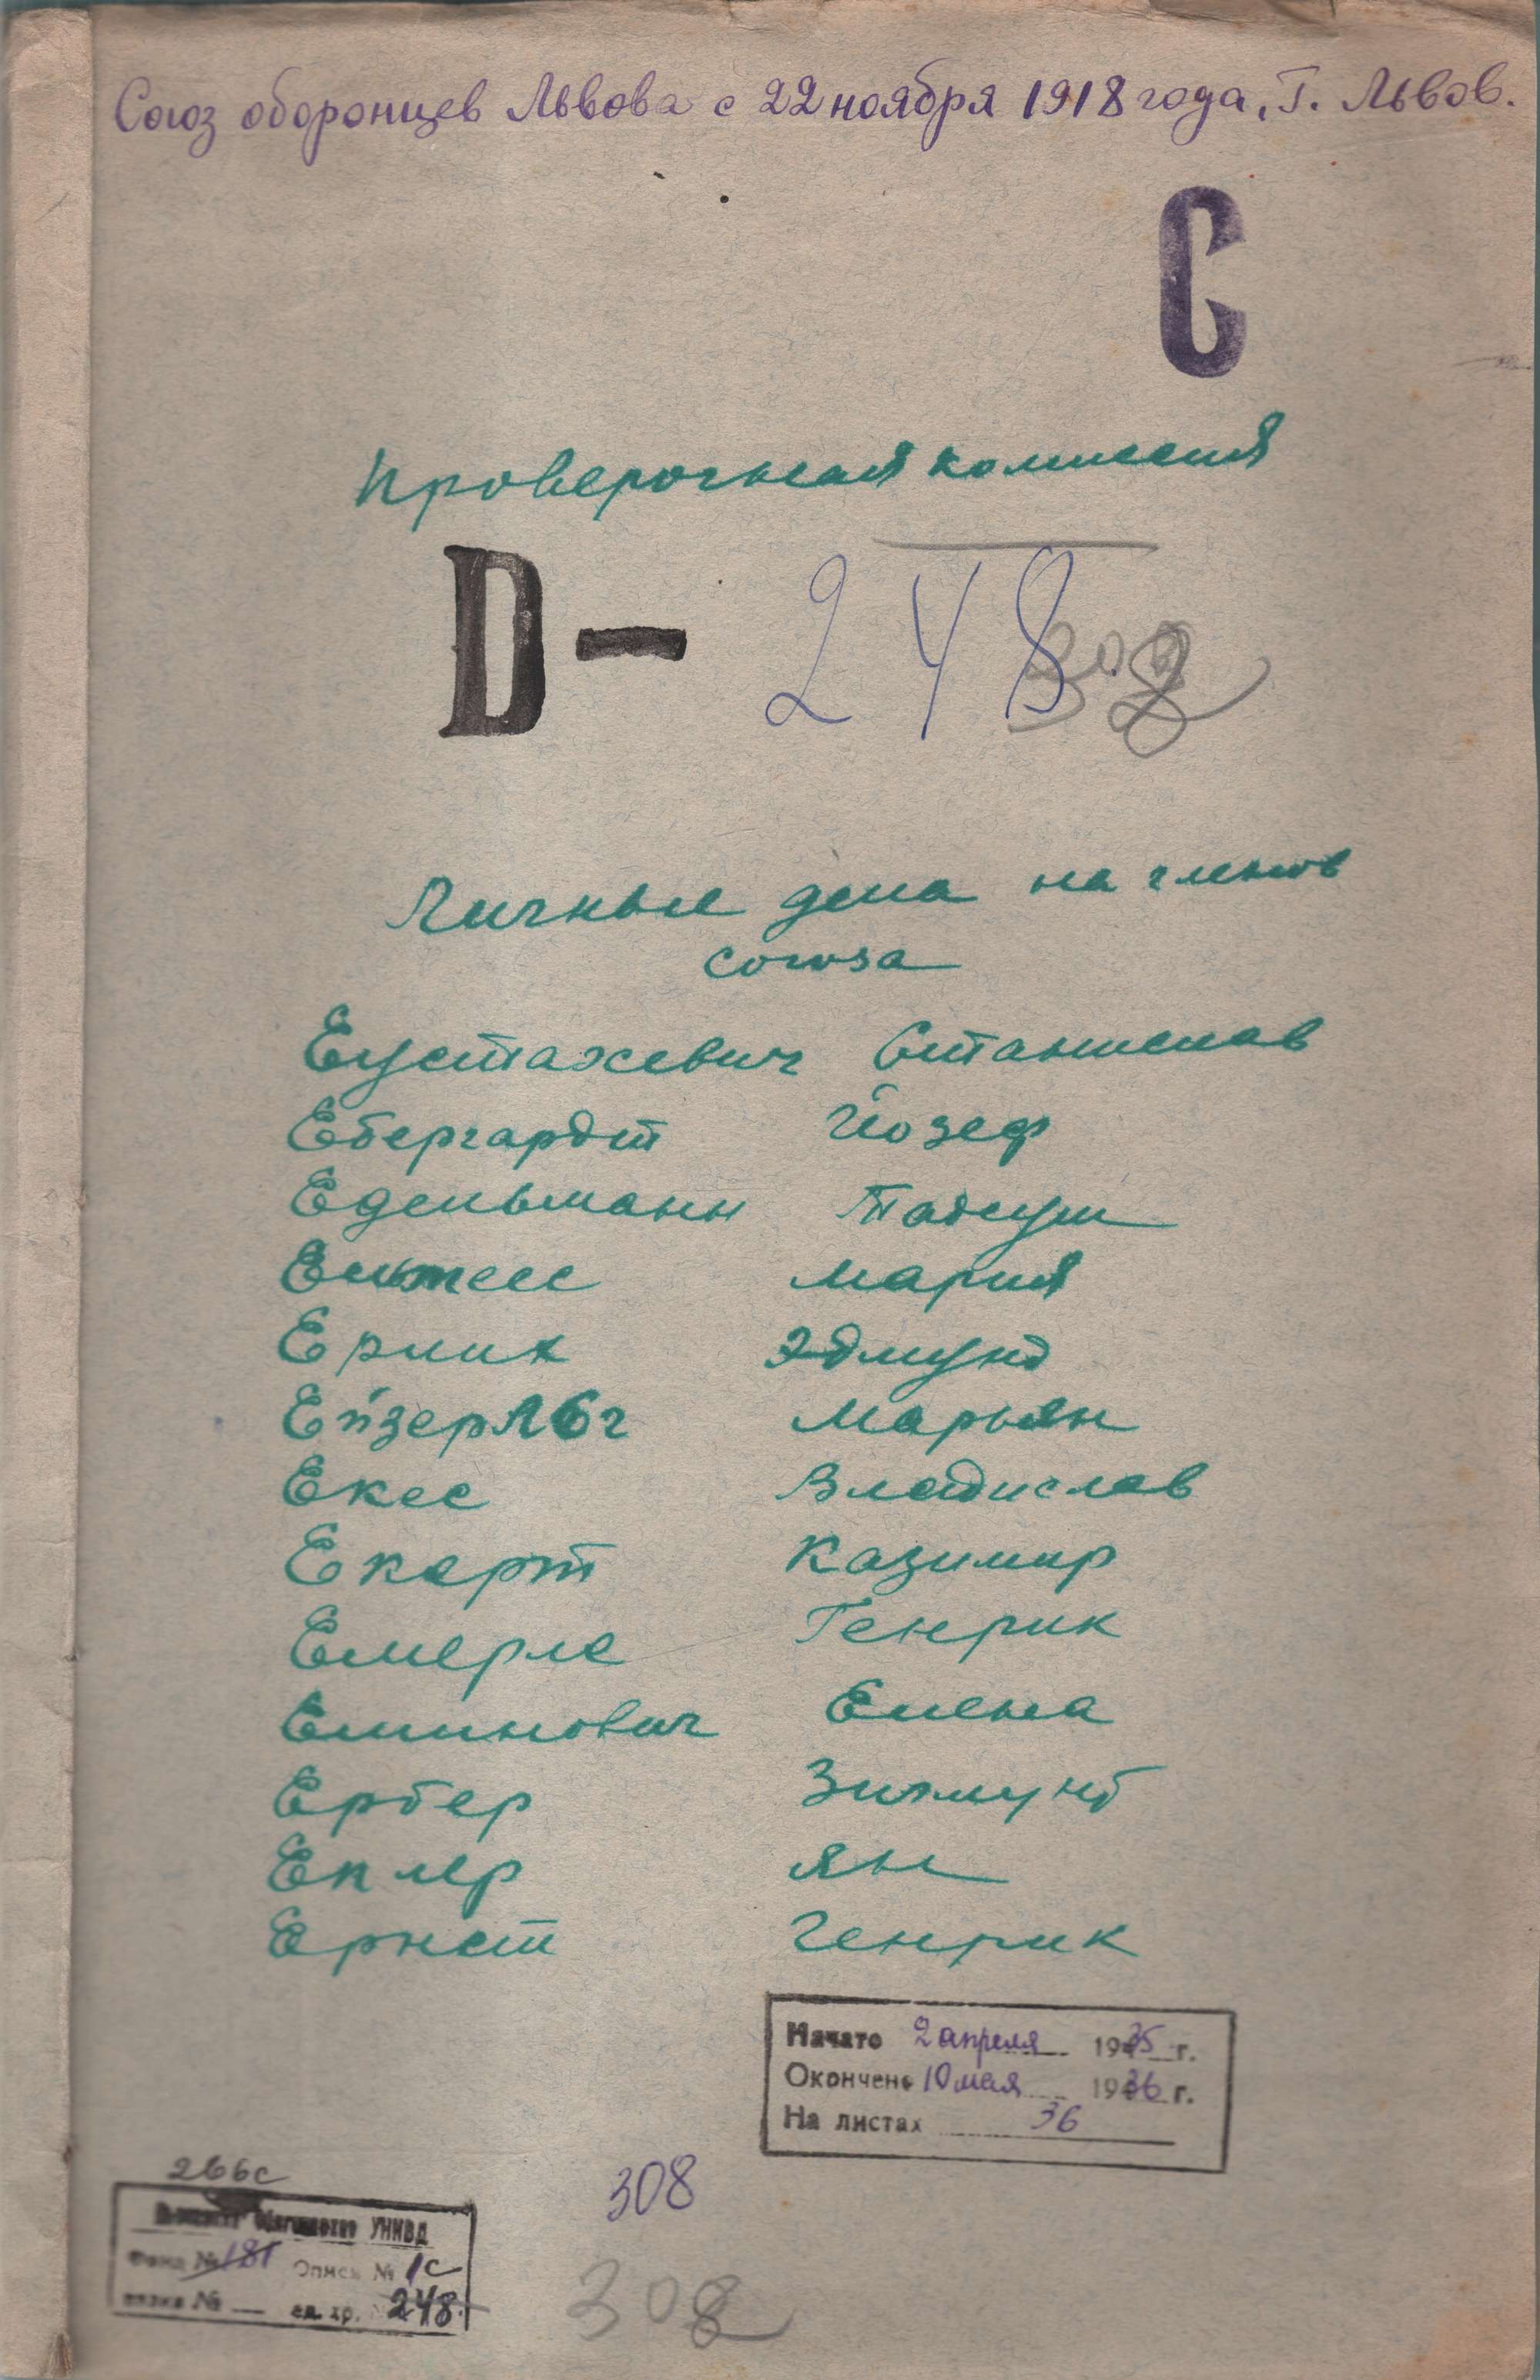 Союз оборонцев Львова с 22 ноября 1918 года, г. Львов.
С
Проверочная комиссия
D- 248
308
Личные дела на членов
союза
Еустахевич Станислав
Ебергардт Йозеф
Едельманн Тадеуш
Ельжесс Мария
Ерлих Эдмунд
Марьян
Екес Владислав
Екерт Казимир
Емерле Генрик
Еминович Елена
Ербер Зигмунд
Еплер Ян
Ернст Генрик
Начато 2 апреля 1935 г.
Окончено 10 мая 1936 г.
На листах 36
266с
308
УНКВД
Фонд № 181 Опись № 1с
связка № ед. хр. 248
308